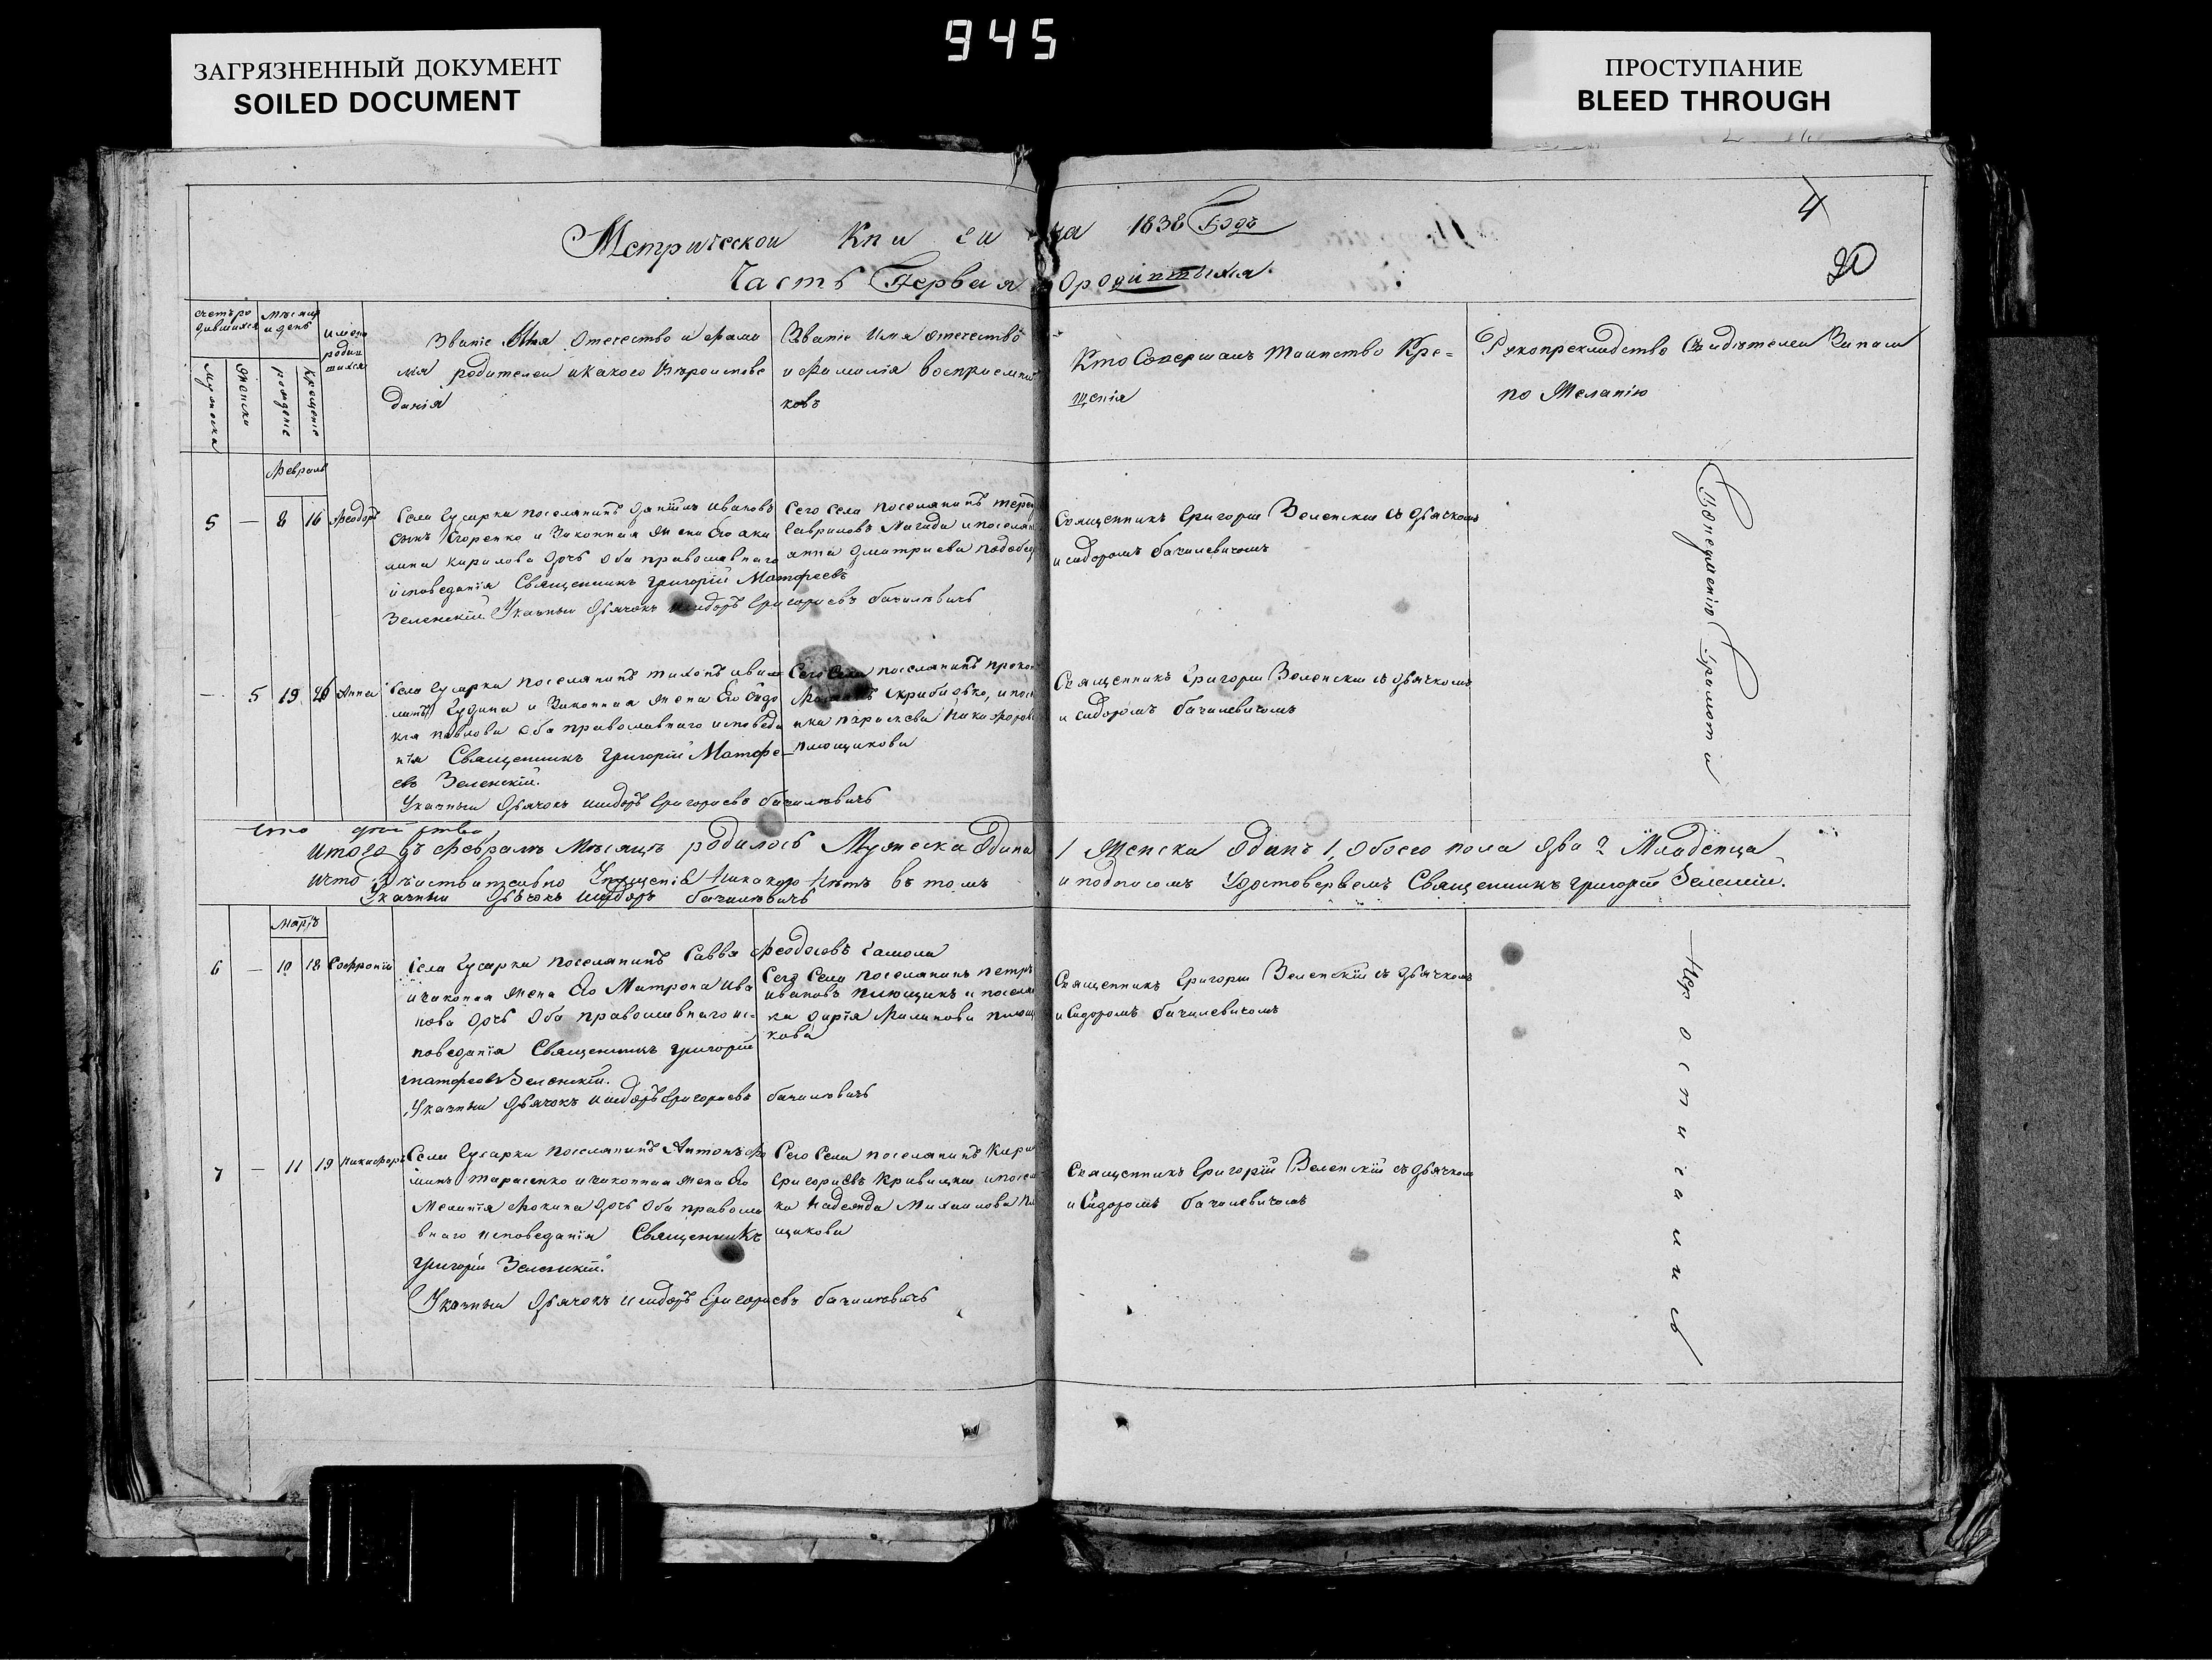 945
ЗАГРЯЗНЕННЫЙ ДОКУМЕНТ
SOILED DOCUMENT
ПРОСТУПАНИЕ
BLEED THROUGH
4
20
Метрической Книги на 1838 Годъ
Часть Первая О родившихся
Званіе Имя Отечество и Фами
лія родителей и какого Вѣроиспове
данія
Званіе Имя отечество
и Фамилія восприемни
ковъ
Кто Совершалъ Таинство Кре=
щенія
Рукоприкладство Свидѣтелей Записи
по Желанію
мужеска
женска
рожденіе
крещеніе
Февраль
5 — 8 16 Феодоръ
Села Гусарки поселянинъ Ивановъ
сынъ и Законная жена его аки
лина Кирилова дочь оба православнаго
исповеданія Священникъ Григорій Матфеевъ
Зеленскій Указный Дьячокъ Исидоръ Григориевъ бачилѣвичь
Сего Села поселянинъ
Гавриловъ Магида и поселян
анна дмитриева
Священникъ Григорій Зеленскій съ дьячкомъ
исидоромъ бачилевичомъ
По неумению Грамоты
— 5 19 26 Анна
Села Гусарки поселянинъ тихонъ
и Законная жена Его Евдо
кия павлова оба православнаго исповеда
нія Священникъ Григорій Матфе-
евъ Зеленскій.
Указный Дьячокъ исидоръ Григориевъ бачилѣвичь
Сего Села поселянинъ
и посел
нка параскева Никифорова
плющикова
Священникъ Григорій Зеленскій съ дьячкомъ
исидоромъ бачилевичомъ
Итого въ Февралѣ Мѣсяцѣ родилось Мужеска Одинъ 1 Женска Одинъ 1, Обоего пола два 2 Младенца
и что дѣиствительно Упущенія Никакого Нѣтъ въ томъ и подписомъ Удостоверяемъ Священникъ Григорій Зеленскій.
Указный Дьячокъ Исидоръ бачилѣвичь
Мартъ
6 — 10 18 Софроній
Села Гусарки поселянинъ Савва Феодосовъ
и законая жена Его Матрона Ива
нова дочь Оба православнаго ис=
поведанія Священникъ Григорій
Матфеевъ Зеленскій.
Указный Дьячокъ исидоръ Григориевъ бачилѣвичь
Сего Села поселянинъ петръ
ивановъ плющикъ и поселян
ка дарія Филипова плющи
кова
Священникъ Григорій Зеленскій съ дьячкомъ
исидоромъ бачилевичомъ
Неросписались
7 — 11 19 Никифоръ
Села Гусарки поселянинъ Антонъ Фо
минъ тарасенко и законная жена Его
Меланія Фокина дочь Оба правосла
внаго исповеданія Священникъ
Григорій Зеленскій.
Указный Дьячокъ исидоръ Григориевъ бачилѣвичь
Сего Села поселянинъ Кири
Григориевъ и посел
ка Надежда Михаилова Плю
щикова
Священникъ Григорій Зеленскій съ дьячкомъ
исидоромъ бачилевичомъ